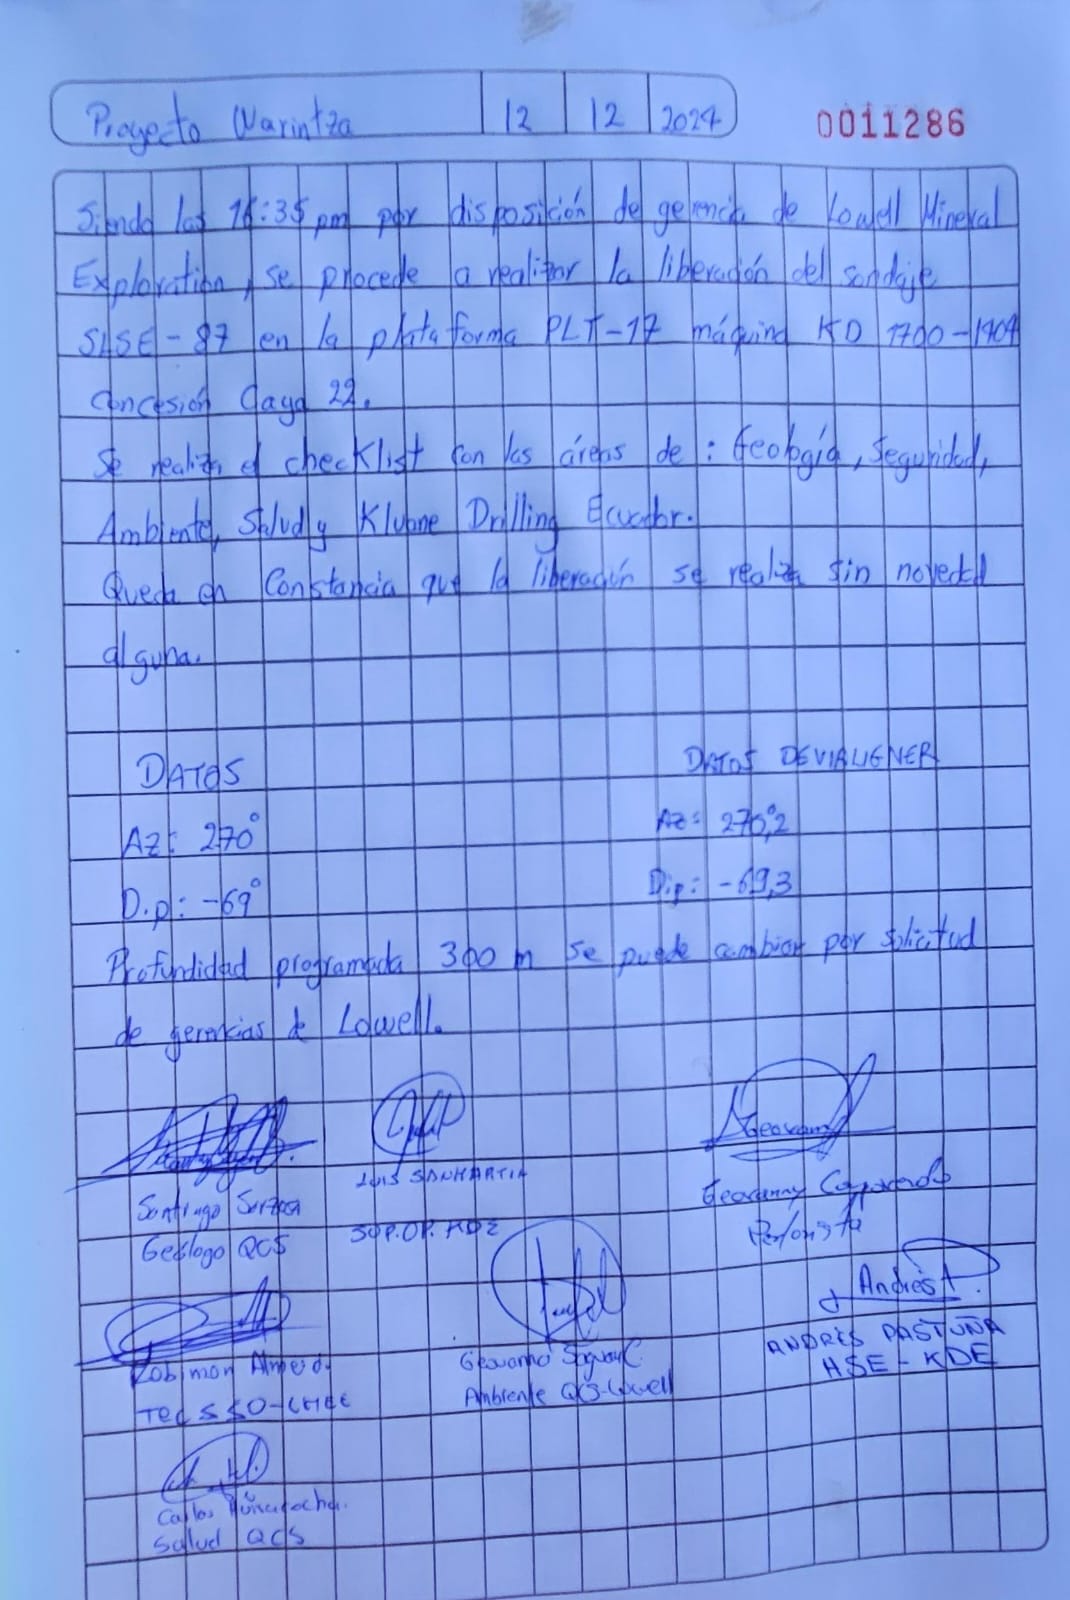 Proyecto Warintza 12 12 2024 0011286
Siendo las 16:35 pm por disposición de gerencia de Lowell Mineral
Exploration, se procede a realizar la liberación del sondaje
SLSE-87 en la plataforma PLT-17 máquina KD 1700-1404
Concesión Caya 22.
Se realiza el checklist con las áreas de: Geología, Seguridad,
Ambiente, Salud y Kluane Drilling Ecuador.
Queda en Constancia que la liberación se realiza sin novedad
alguna.
DATOS DATOS DEVIALIGNER
Az: 270° Az: 270,2
Dip: -69° Dip: -69,3
Profundidad programada 300 m se puede cambiar por solicitud
de gerencias de Lowell.
LUIS SANMARTIN
Santiago Geovanny
Geólogo QCS SUP.OP. KDE Perforista
Andrés
Almeida Geovanna ANDRÉS PASTUÑA
Tec SSO-LMEE Ambiente QCS-Lowell HSE-KDE
Carlos
Salud QCS